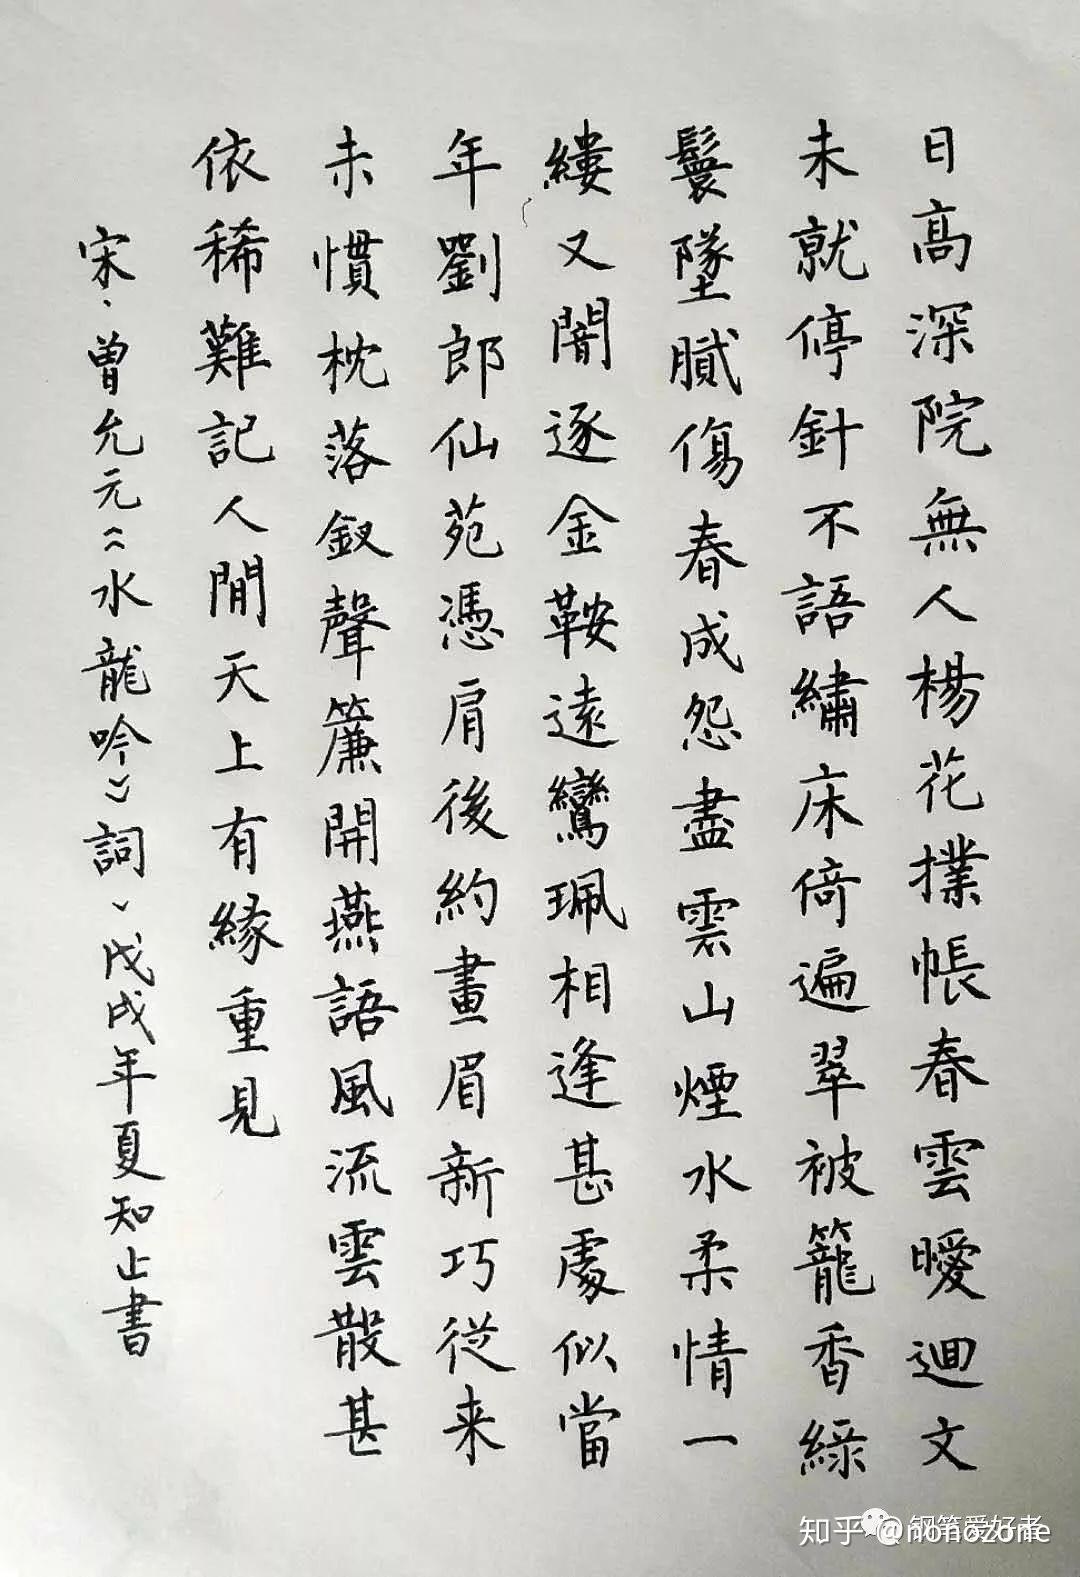 日高深院無人楊花撲帳春雲曖迴文
未就停針不語繡床倚遍翠被籠香綠
鬟墜膩傷春成怨盡雲山煙水柔情一
縷又闇逐金鞍遠鸞珮相逢甚處似當
年劉郎仙苑憑肩後約畫眉新巧從来
未慣枕落釵聲簾開燕語風流雲散甚
依稀難記人間天上有緣重見
宋·曾允元《水龍吟》詞、戊戌年夏知止書
知乎 @nonozone
钢笔爱好者